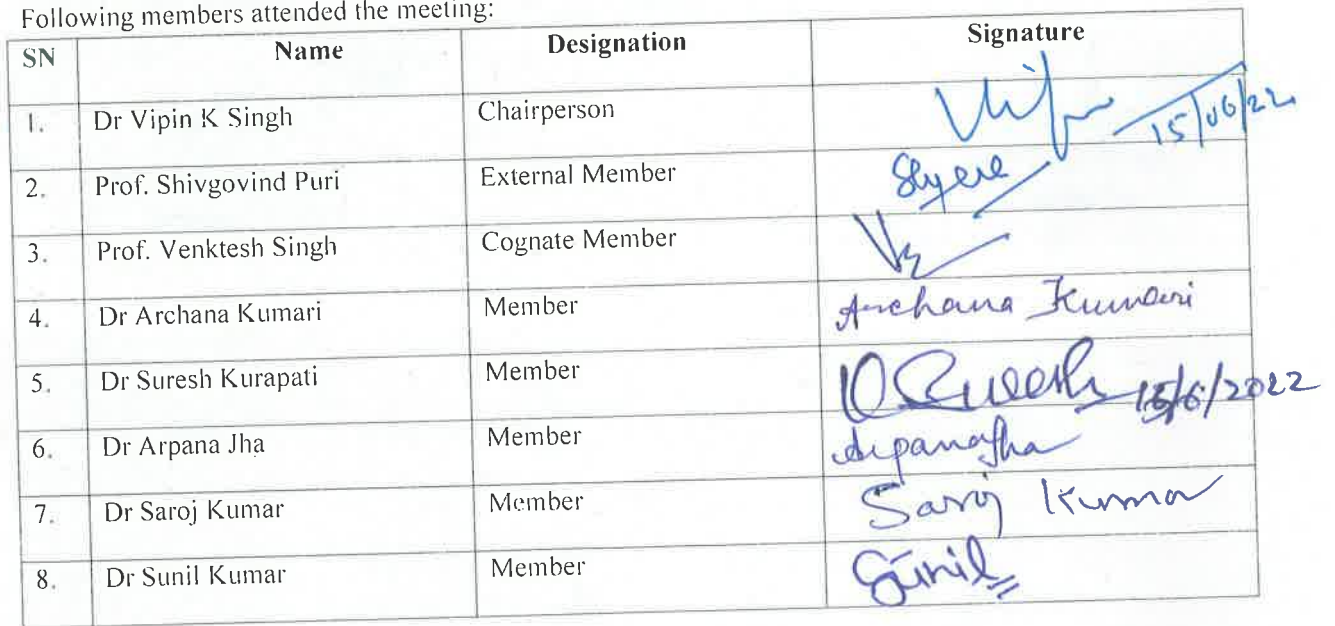 Following members attended the meeting:
SN Name Designation Signature
1. Dr Vipin K Singh Chairperson 15/06/22
2. Prof. Shivgovind Puri External Member
3. Prof. Venktesh Singh Cognate Member
4. Dr Archana Kumari Member Archana Kumari
5. Dr Suresh Kurapati Member K Suresh 15/6/2022
6. Dr Arpana Jha Member Arpana Jha
7. Dr Saroj Kumar Member Saroj Kumar
8. Dr Sunil Kumar Member Sunil